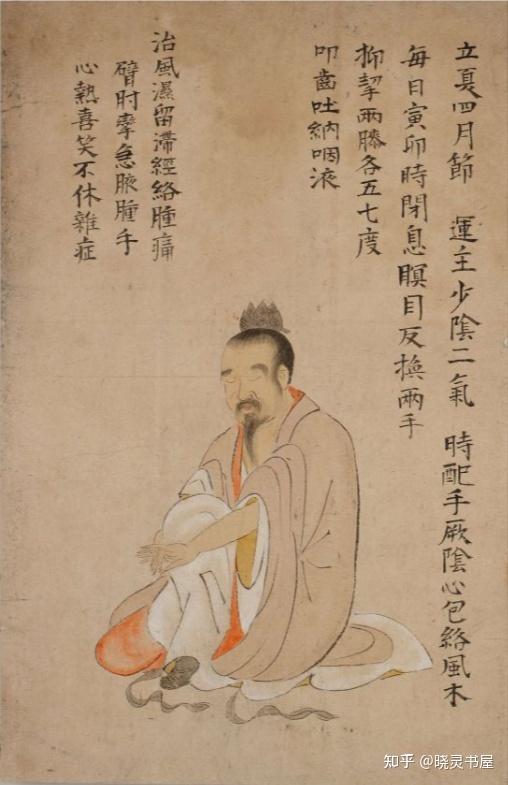 立夏四月節　運主少陰二氣　時配手厥陰心包絡風木
每日寅卯時閉息瞑目反換兩手
抑挈兩膝各五七度
叩齒吐納咽液
治風濕留滯經絡腫痛
臂肘攣急腋腫手
心熱喜笑不休雜症
知乎 @晓灵书屋